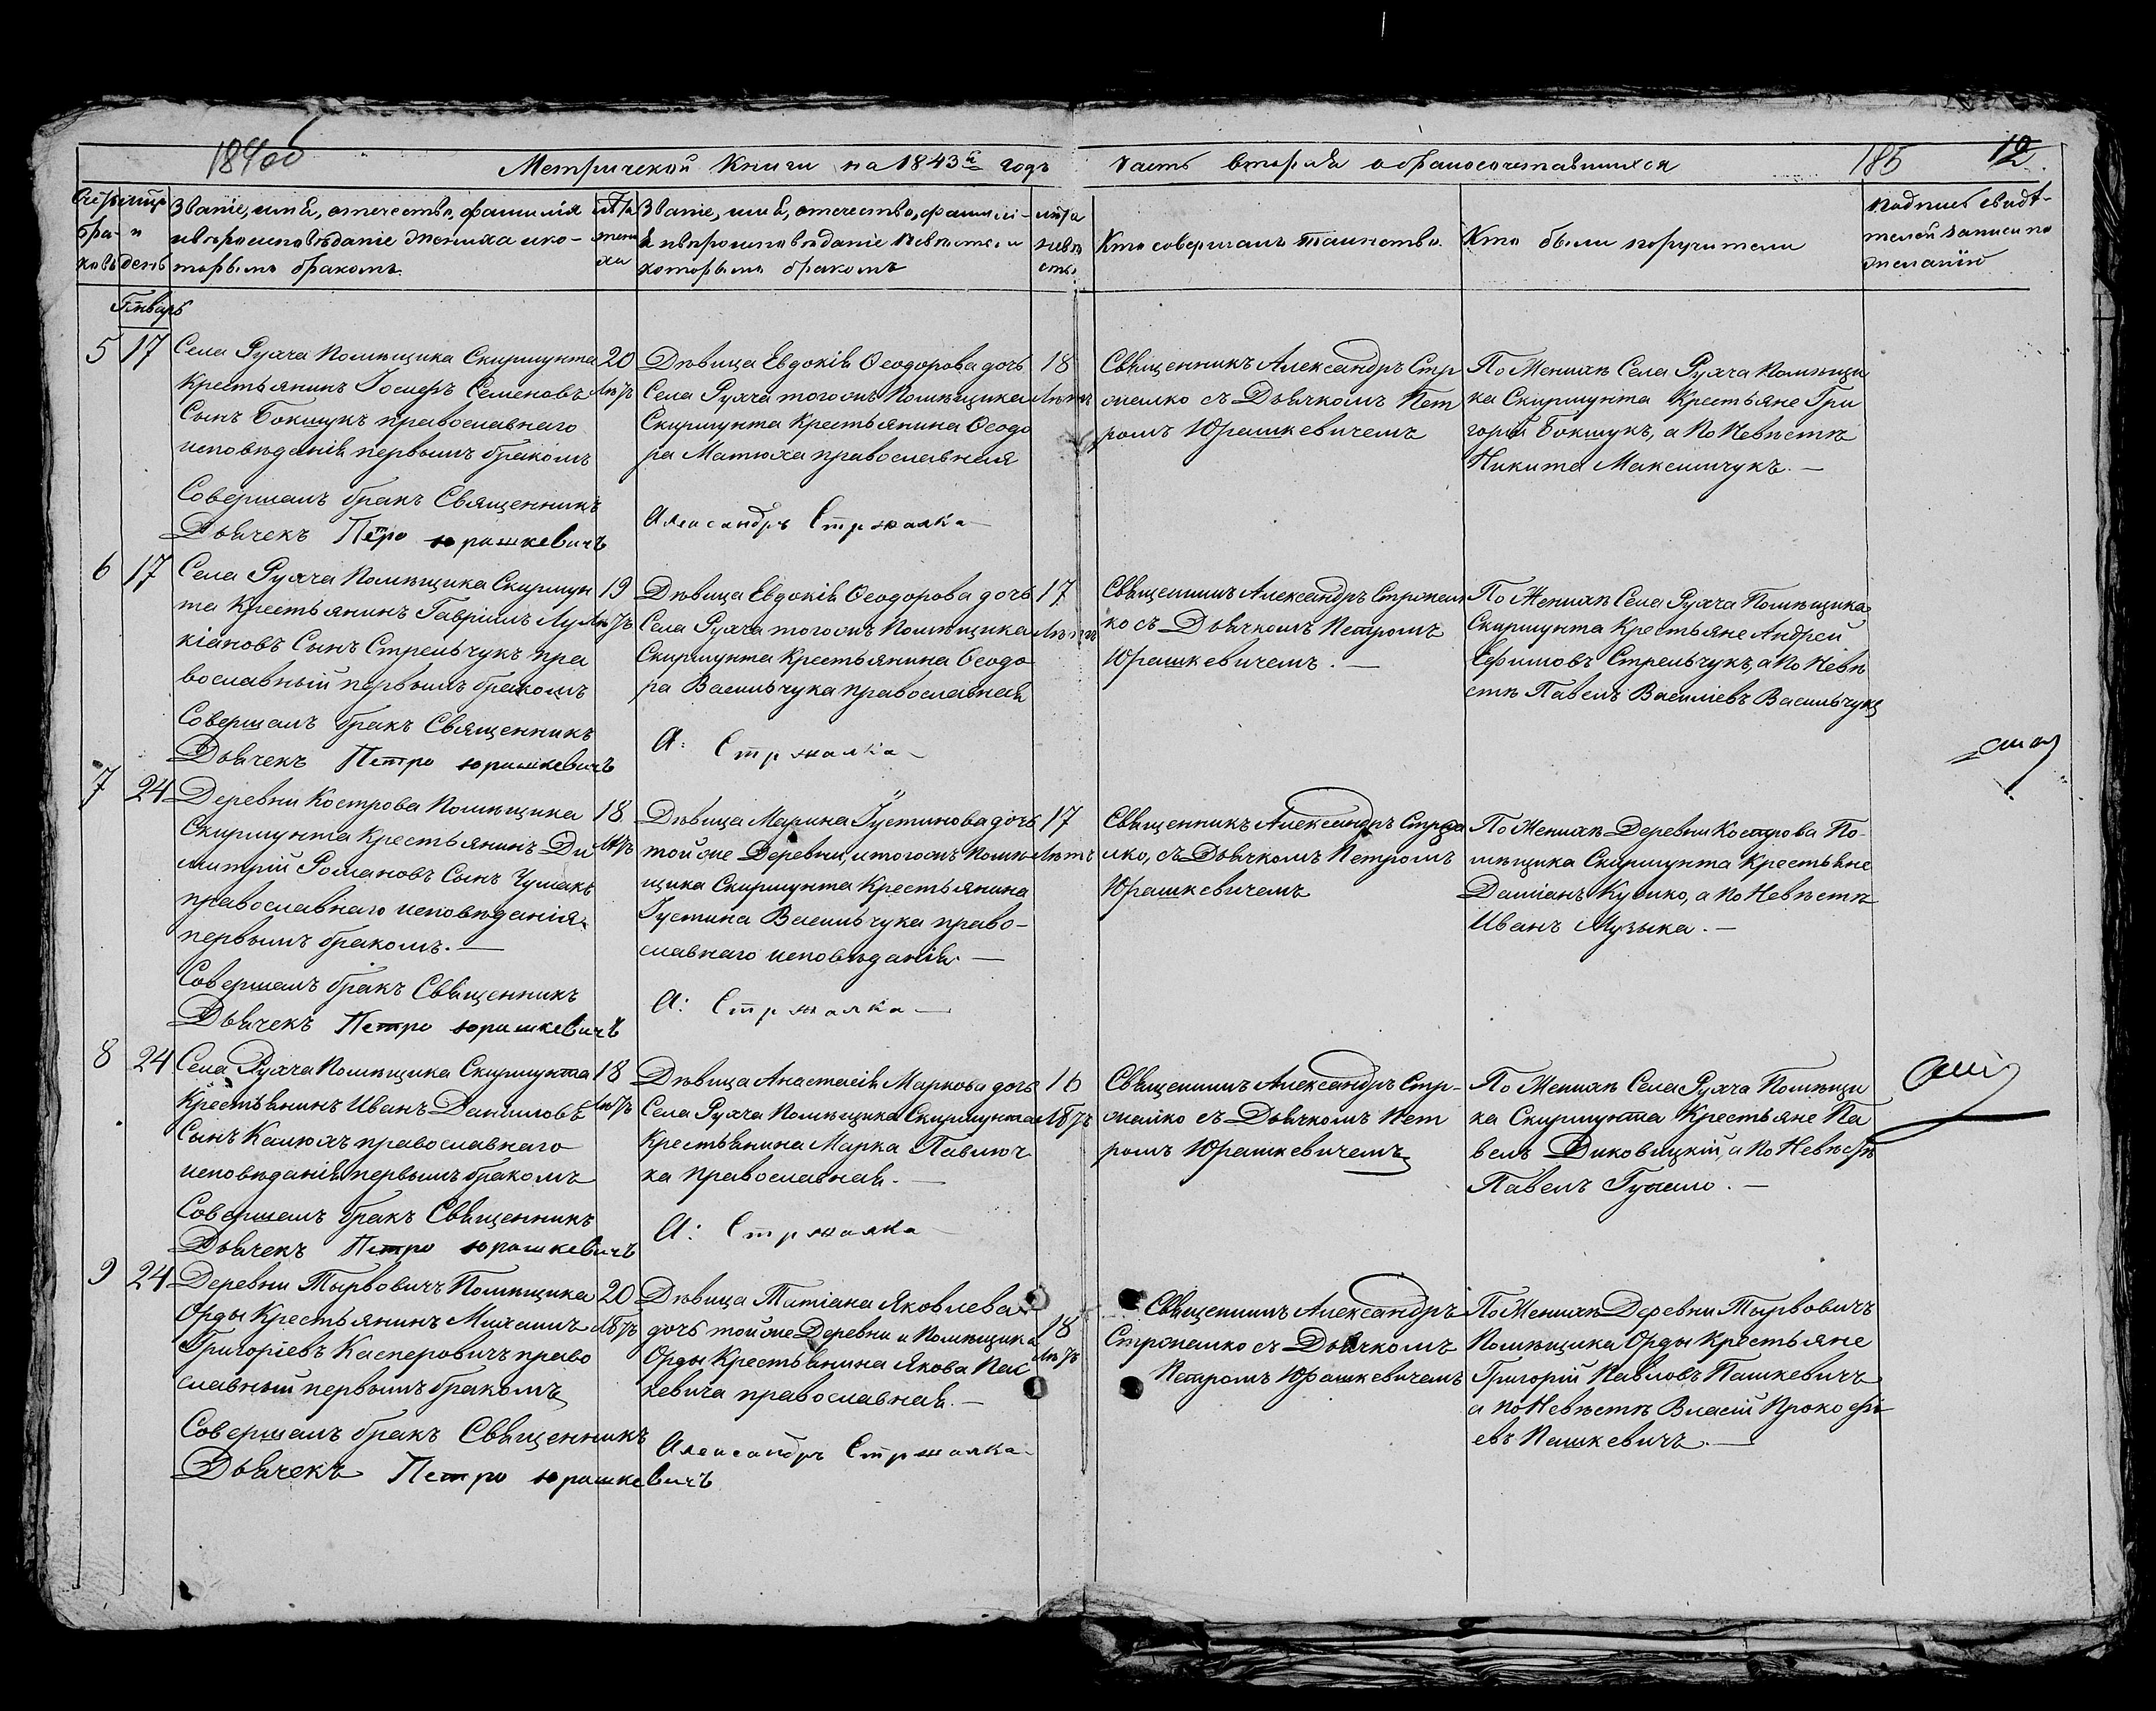 Метрической Книги на 1843й годъ часть вторая о бракосочетавшихся
185 12
Званіе, имя, отечество, фамилія
и вѣроисповѣданіе жениха и ко-
торымъ бракомъ.
лѣта
жени
ха
Званіе, имя, отечество, фамилі-
я и вѣроисповѣданіе невѣсты и
которымъ бракомъ
лѣта
невѣ
сты
Кто совершалъ таинство
Кто были поручители
подпись свидѣ-
телей записи по
желанію
Генварь
5 17
Села Рухча Помѣщика Скирмунта
Крестьянинъ Іосифъ Семеновъ
Сынъ Бокшукъ православнаго
исповѣданія первымъ бракомъ
20
лѣтъ
Дѣвица Евдокія Ѳеодорова дочь
Села Рухча тогожъ Помѣщика
Скирмунта Крестьянина Ѳеодо
ра Матюха православная
18
лѣтъ
Священникъ Александръ Стр
жалко съ Дьячкомъ Пет
ромъ Юрашкевичемъ
По Женихѣ Села Рухча помѣщи
ка Скирмунта Крестьяне Гри
горій Бокшукъ, а по Невѣстѣ
Никита Максимчукъ. —
Совершалъ бракъ Священникъ Александръ Стржалка
Дьячекъ Петро юрашкевичъ
6 17
Села Рухча Помѣщика Скирмун
та Крестьянинъ Гавріилъ Лу
кіановъ Сынъ Стрельчукъ пра
вославный первымъ бракомъ
19
лѣтъ
Дѣвица Евдокія Ѳеодорова дочь
Села Рухча тогожъ Помѣщика
Скирмунта Крестьянина Ѳеодо
ра Васильчука православная
17
лѣтъ
Священникъ Александръ Стржал
ко съ Дьячкомъ Петромъ
Юрашкевичемъ. —
По Женихѣ Села Рухча Помѣщика
Скирмунта Крестьяне Андрей
Ефимовъ Стрельчукъ, а по Невѣ
стѣ Павелъ Василіевъ Васильчукъ
Совершалъ бракъ Священникъ А: Стржалка
Дьячекъ Петро юрашкевичъ
7 24
Деревни Кострова Помѣщика
Скирмунта Крестьянинъ Ди
митрій Романовъ Сынъ Чумакъ
православнаго исповѣданія
первымъ бракомъ. —
18
лѣтъ
Дѣвица Марина Іустинова дочь
тойже Деревни, и тогожъ Помѣ
щика Скирмунта Крестьянина
Іустина Васильчука право-
славнаго исповѣданія. —
17
лѣтъ
Священникъ Александръ Стржа
лко, съ Дьячкомъ Петромъ
Юрашкевичемъ
По Женихѣ Деревни Кострова По-
мѣщика Скирмунта Крестьяне
Даміанъ, а по Невѣстѣ
Иванъ Музыка. —
Совершалъ бракъ Священникъ А: Стржалка —
Дьячекъ Петро юрашкевичъ
8 24
Села Рухча Помѣщика Скирмунта
Крестьянинъ Иванъ Даниловъ
Сынъ Калюхъ православнаго
исповѣданія первымъ бракомъ
18
лѣтъ
Дѣвица Анастасія Маркова дочь
Села Рухча Помѣщика Скирмунта
Крестьянина Марка Павлюч
ка православная. —
16
лѣтъ
Священникъ Александръ Стр-
жалко съ Дьячкомъ Пет
ромъ Юрашкевичемъ
По Женихѣ Села Рухча Помѣщи
ка Скирмунта Крестьяне Па
велъ Диковицкій, а по Невѣстѣ
Павелъ. —
Совершалъ бракъ Священникъ А: Стржалка
Дьячекъ Петро юрашкевичъ
9 24
Деревни Тырвовичъ Помѣщика
Орды Крестьянинъ Михаилъ
Григоріевъ Касперовичъ право
славный первымъ бракомъ
20
лѣтъ
Дѣвица Татіана Яковлева
дочь тойже Деревни и Помѣщика
Орды Крестьянина Якова Паш
кевича православная. —
18
лѣтъ
Священникъ Александръ
Стржалко съ Дьячкомъ
Петромъ Юрашкевичемъ
По Женихѣ Деревни Тырвовичъ
Помѣщика Орды Крестьяне
Григорій Павловъ Пашкевичъ
а по Невѣстѣ Власій Прокофі
евъ Пашкевичъ. —
Совершалъ бракъ Священникъ Александръ Стржалка
Дьячекъ Петро юрашкевичъ